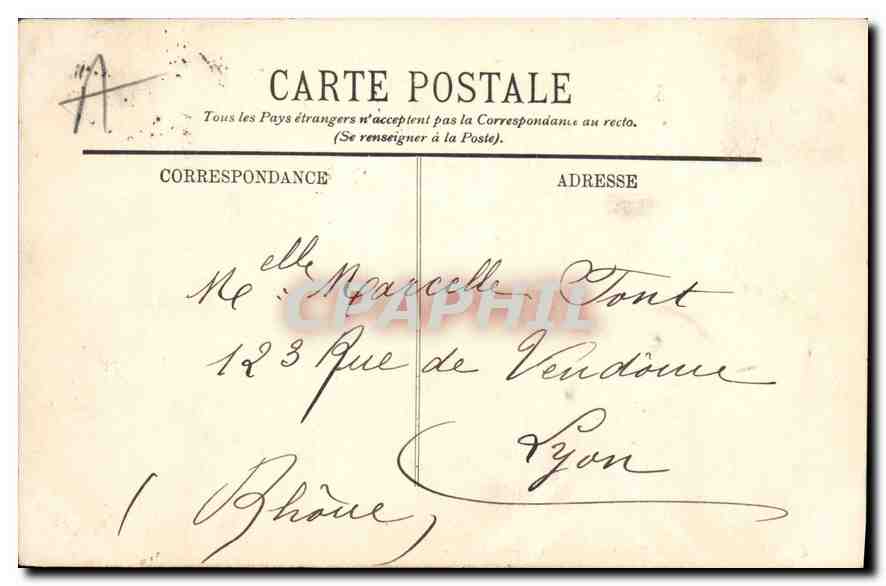 A
CARTE POSTALE
Tous les Pays étrangers n'acceptent pas la Correspondance au recto.
(Se renseigner à la Poste).
CORRESPONDANCE
ADRESSE
Melle Marcelle Tont
CPAPHIL
123 Rue de Vendôme
Lyon
(Rhône)